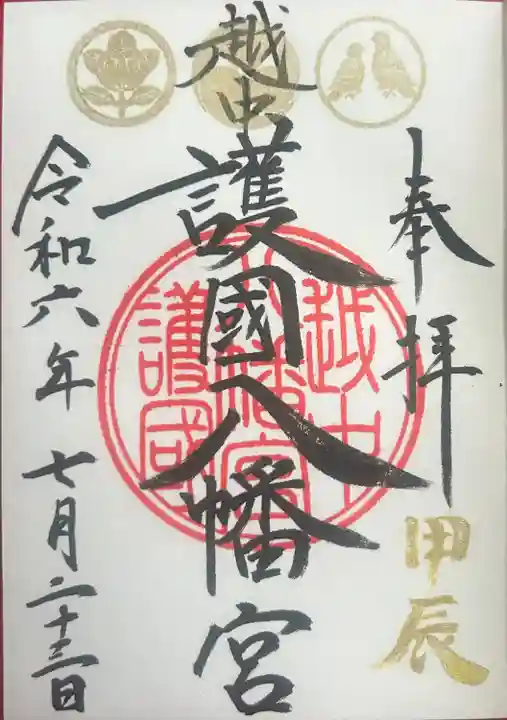 奉拝
甲辰
越中
護國八幡宮
越中
八幡宮
護國
令和六年七月二十三日